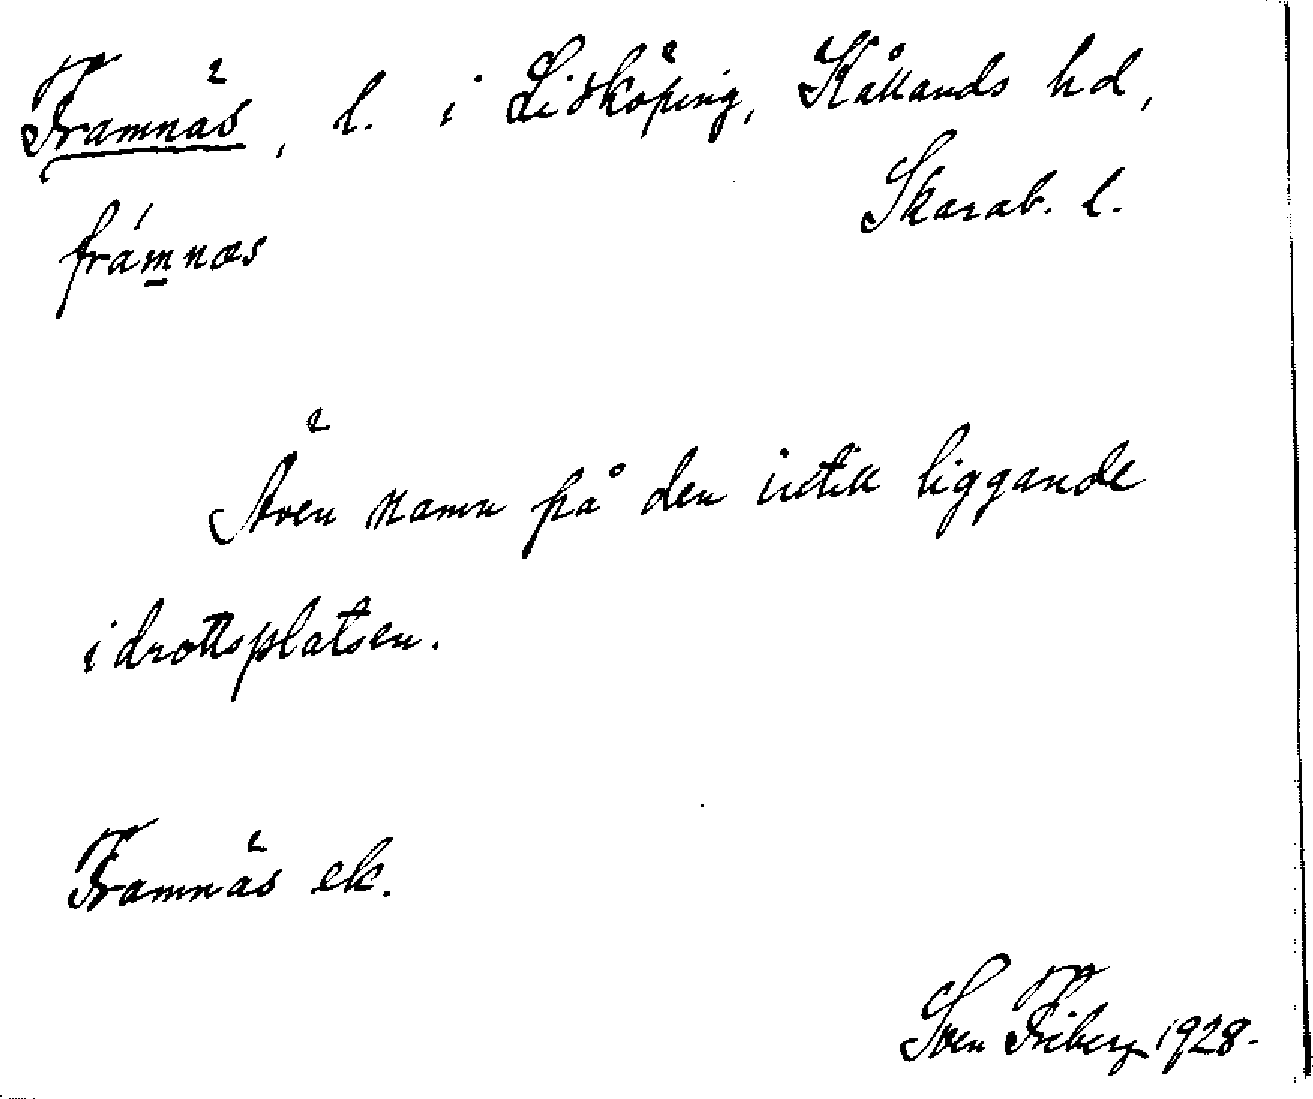 Framnäs, l. i Lidköping, Kållands hd,
Skarab. l.
frámnäs
Även namn på den intill liggande
idrottsplatsen.
Framnäs ek.
Sven Friberg 1928.